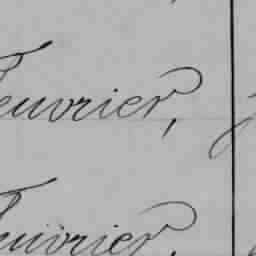 Feuvrier,
Feuvrier,